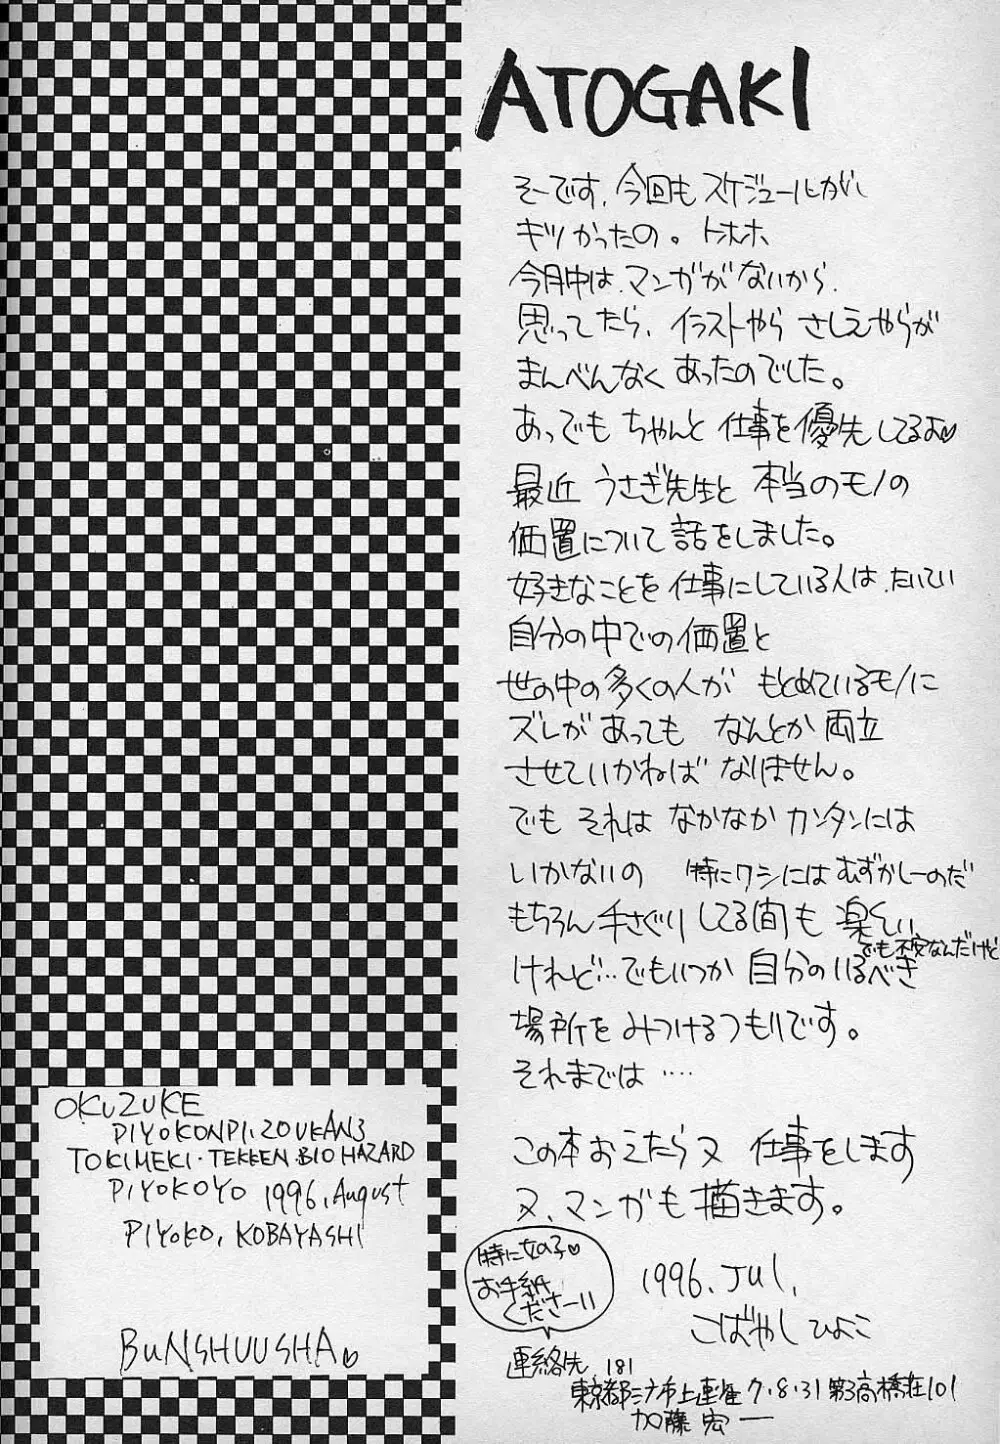 ATOGAKI
そーです、今回もスケジュールがし
キツかったの。トホホ
今月中は、マンガがないから、
思ってたら、イラストやら さしえやらが
まんべんなく あったのでした。
あっでも ちゃんと 仕事を優先してるよ♡
最近 うさぎ先生と 本当のモノの
価置について 話をしました。
好きなことを 仕事にしている人は、たいてい
自分の中での価置と
世の中の多くの人が もとめているモノに
ズレがあっても なんとか 両立
させていかねば なりません。
でも それは なかなか カンタンには
いかないの 特にワシには むずかしーのだ
もちろん 手さぐりしてる間も 楽しい
でも不安なんだけど
けれど…でもいつか 自分のいるべき
場所を みつけるつもりです。
それまでは ‥‥
この本おえたら又 仕事をします
又、マンガも描きます。
1996. Jul,
こばやしひよこ
特に女の子♡
お手紙
くださーい
連絡先 181
東京都三鷹市上連雀 7・8・31 第3高橋荘101
加藤 宏一
OKUZUKE
PIYOKONPI.ZOUKAN3
TOKIMEKI・TEKKEN・BIO HAZARD
PIYOKOYO 1996, August
PIYOKO, KOBAYASHI
BUNSHUUSHA♡